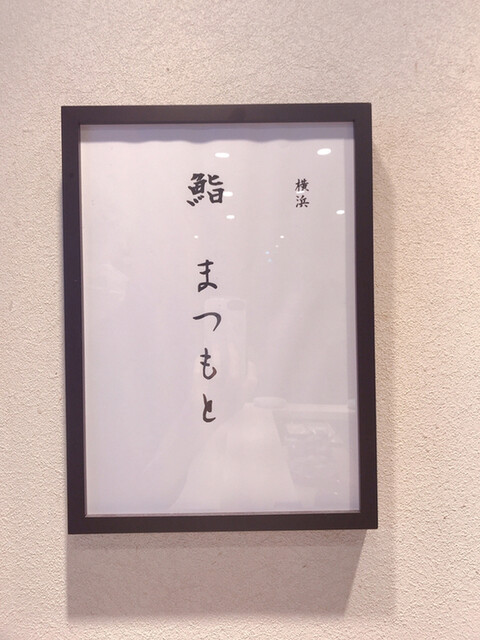 横浜
鮨 まつもと